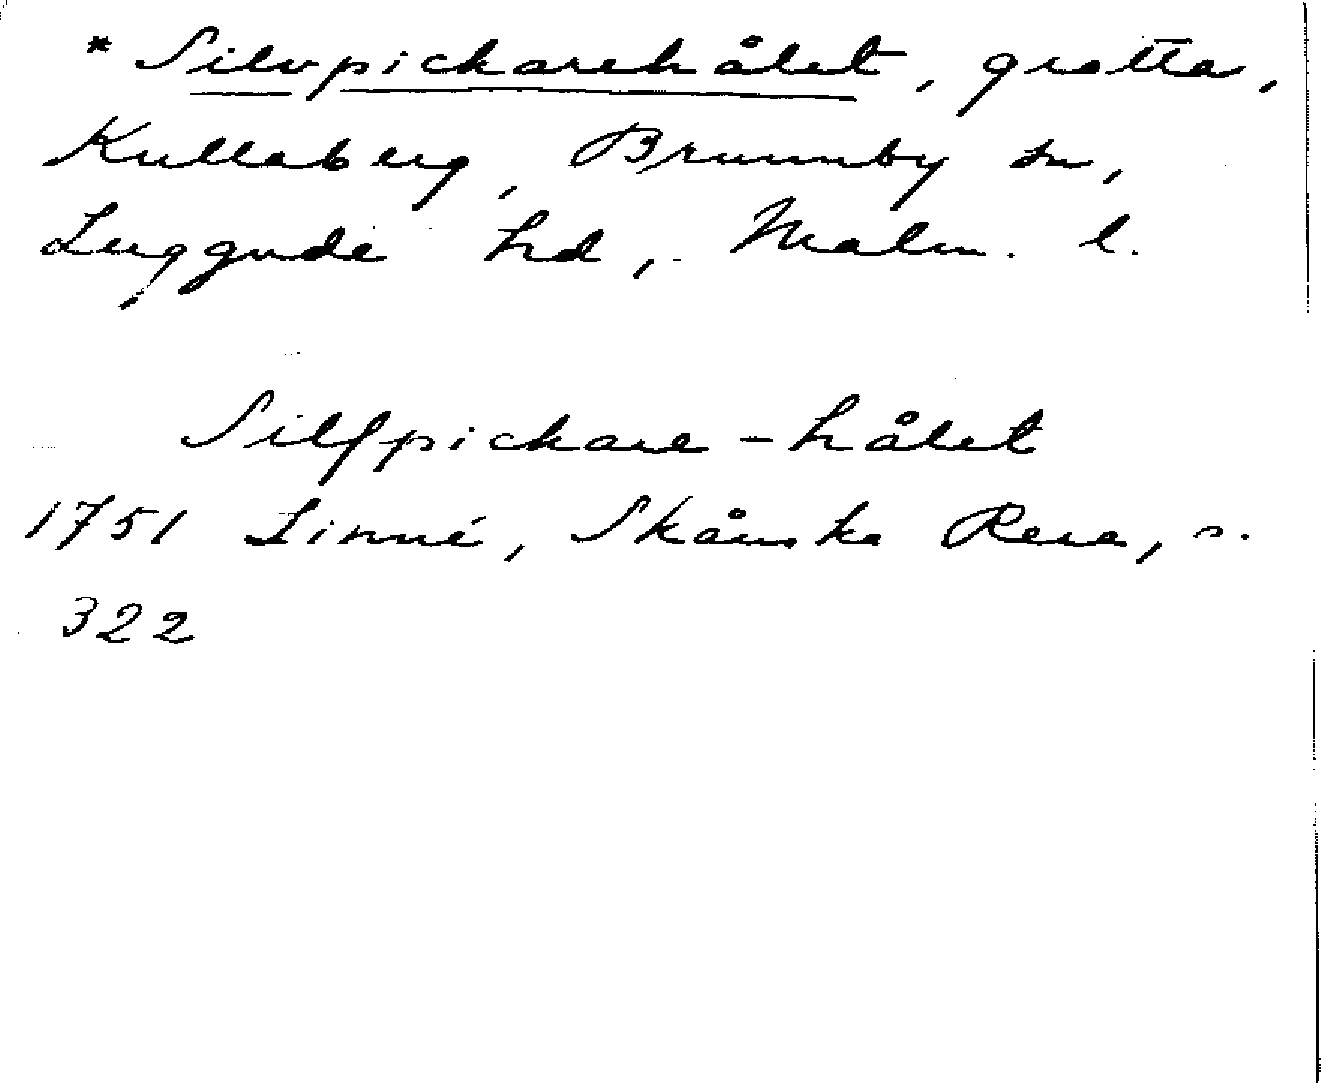 * Silvpickarehålet, grotta,
Kullaberg, Brunnby sn,
Luggude hd, Malm. l.
Silfpickare-hålet
1751 Linné, Skånska Resa, s.
322